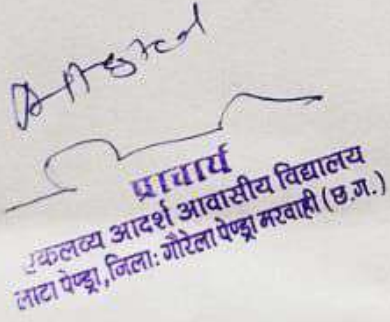 Attested
प्राचार्य
एकलव्य आदर्श आवासीय विद्यालय
लाटा पेण्ड्रा, जिला: गौरेला पेण्ड्रा मरवाही (छ.ग.)